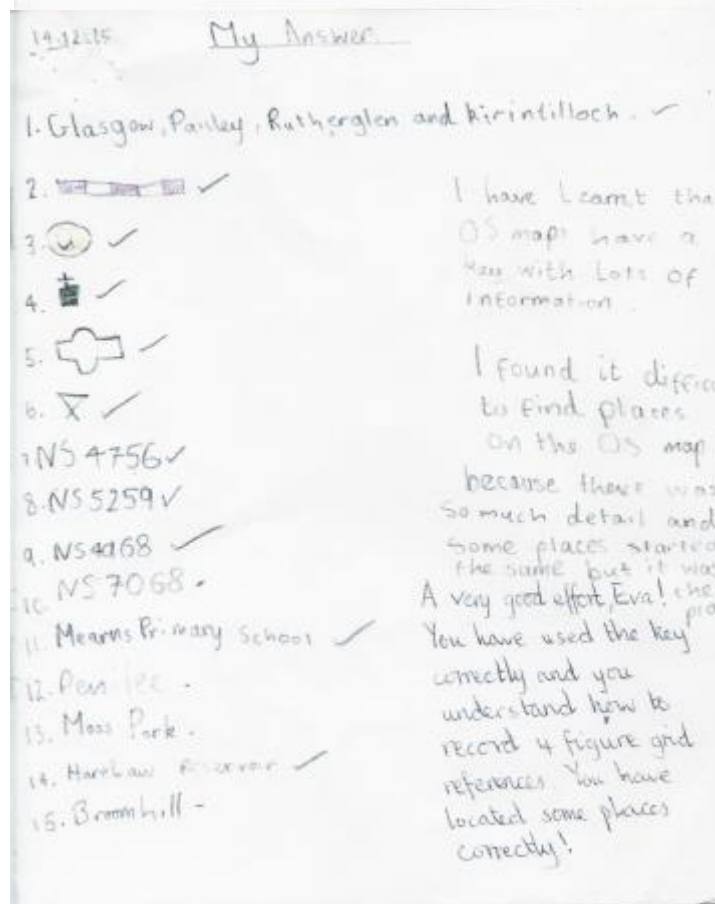 14.12.15 My Answer
1. Glasgow, Pailey, Rutherglen and kirintilloch. ✓
2. ✓
3. ✓
4. ✓
5. ✓
6. ✓
7. NS 4756 ✓
8. NS 5259 ✓
9. NS 4968 ✓
10. NS 7068 .
11. Mearns Primary School ✓
12.
13. Moss Park .
14. Harelaw Reservoir ✓
15. Broomhill -
I have Learnt tha
OS maps have a
key with Lots of
information .
I found it diffic
to find places
on the OS map
because there was
so much detail and
some places started
the same but it was
the
A very good effort, Eva!
You have used the key
correctly and you
understand how to
record 4 figure grid
references. You have
located some places
correctly!